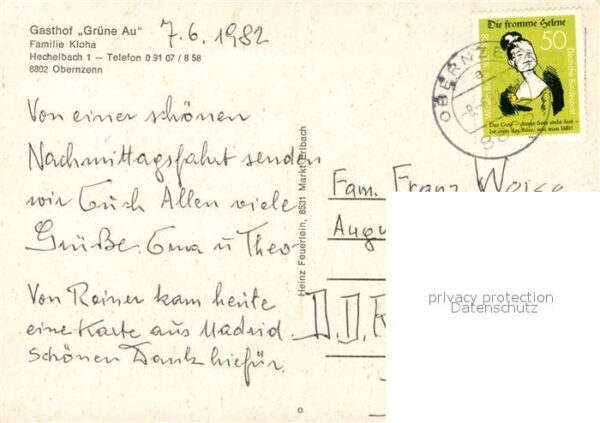 Gasthof „Grüne Au"
Familie Kloha
Hechelbach 1 – Telefon 0 91 07 / 8 58
8802 Obernzenn
7.6.1982
Von einer schönen
Nachmittagsfahrt senden
wir Euch Allen viele
Grüße. Oma u Theo
Von Rainer kam heute
eine Karte aus Madrid.
Schönen Dank hiefür.
Heinz Feuerlein, 8531 Markt Erlbach
Die fromme Helene
50
Deutsche Bundespost
Das Gute – dieser Satz steht fest –
Ist stets das Böse, was man läßt!
OBERNZE
Fam. Franz Weise
Augu
D.D.R
privacy protection
Datenschutz